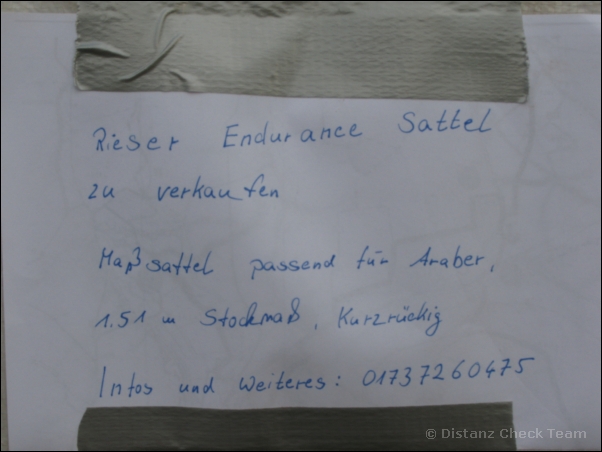 Rieser Endurance Sattel
zu verkaufen
Maßsattel passend für Araber,
1.51 m Stockmaß, Kurzrückig
Infos und weiteres: 01737260475
© Distanz Check Team